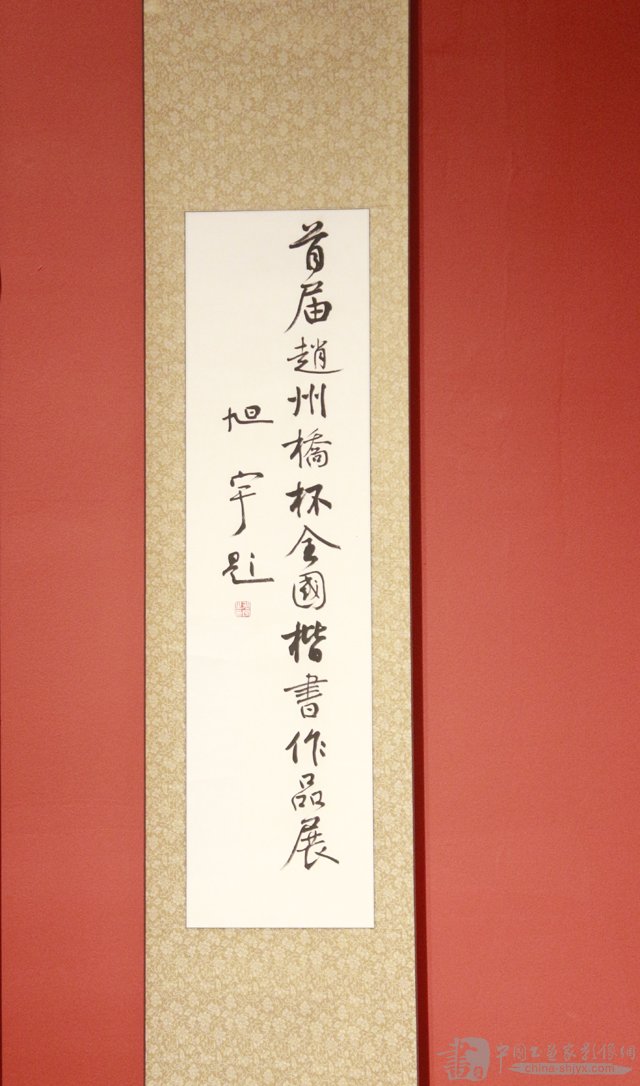 首届趙州橋杯全國楷書作品展
旭宇题
中国书画家影像網
china-shjyx.com